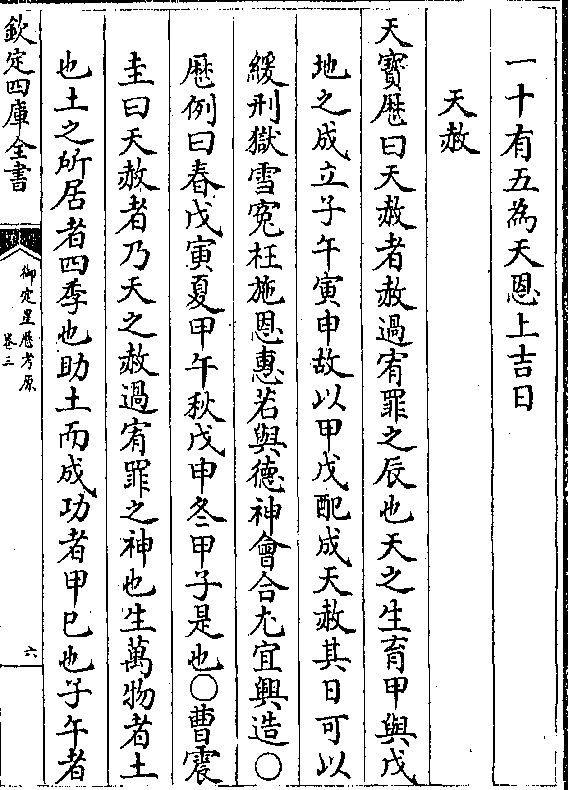 一十有五為天恩上吉日
天赦
天寶厯曰天赦者赦過宥罪之辰也天之生育甲與戊
地之成立子午寅申故以甲戊配成天赦其日可以
緩刑獄雪寃枉施恩惠若與德神會合尤宜興造○
厯例曰春戊寅夏甲午秋戊申冬甲子是也○曹震
圭曰天赦者乃天之赦過宥罪之神也生萬物者土
也土之所居者四季也助土而成功者甲巳也子午者
欽定四庫全書
御定星厯考原
卷三
六